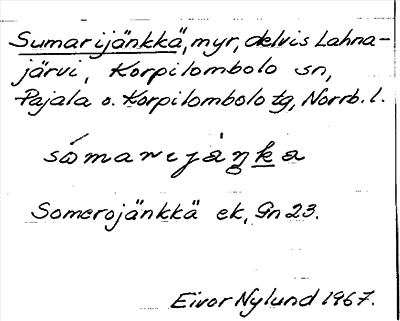 Sumarijänkkä, myr, delvis Lahna-
järvi, Korpilombolo sn,
Pajala o. Korpilombolo tg, Norrb. l.
sómarejäŋka
Somerojänkkä ek, Gn 23.
Eivor Nylund 1967.